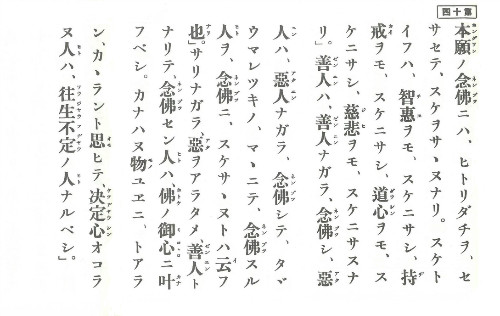 第十四
本願ノ念佛ニハ、ヒトリダチヲ、セ
サセテ、スケヲサヽヌナリ。スケト
イフハ、智惠ヲモ、スケニサシ、持
戒ヲモ、スケニサシ、道心ヲモ、ス
ケニサシ、慈悲ヲモ、スケニサスナ
リ」。善人ハ、善人ナガラ、念佛シ、惡
人ハ、惡人ナガラ、念佛シテ、タヾ
ウマレツキノ、マヽニテ、念佛スル
人ヲ、念佛ニ、スケサヽヌトハ云フ
也」。サリナガラ、惡ヲアラタメ、善人ト
ナリテ念佛セン人ハ佛ノ御心ニ叶
フベシ。カナハヌ物ユヱニ、トアラ
ン、カヽラント思ヒテ决定心オコラ
ヌ人ハ、往生不定ノ人ナルベシ」。